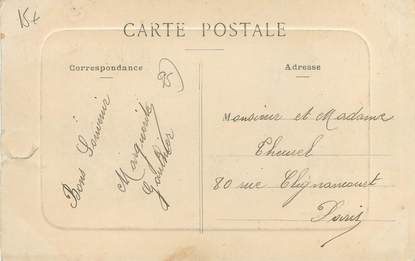 15+
CARTE POSTALE
Correspondance
Adresse
25
Bons Souvenir
Marguerite
Monsieur et Madame
80 rue Clignancourt
Paris